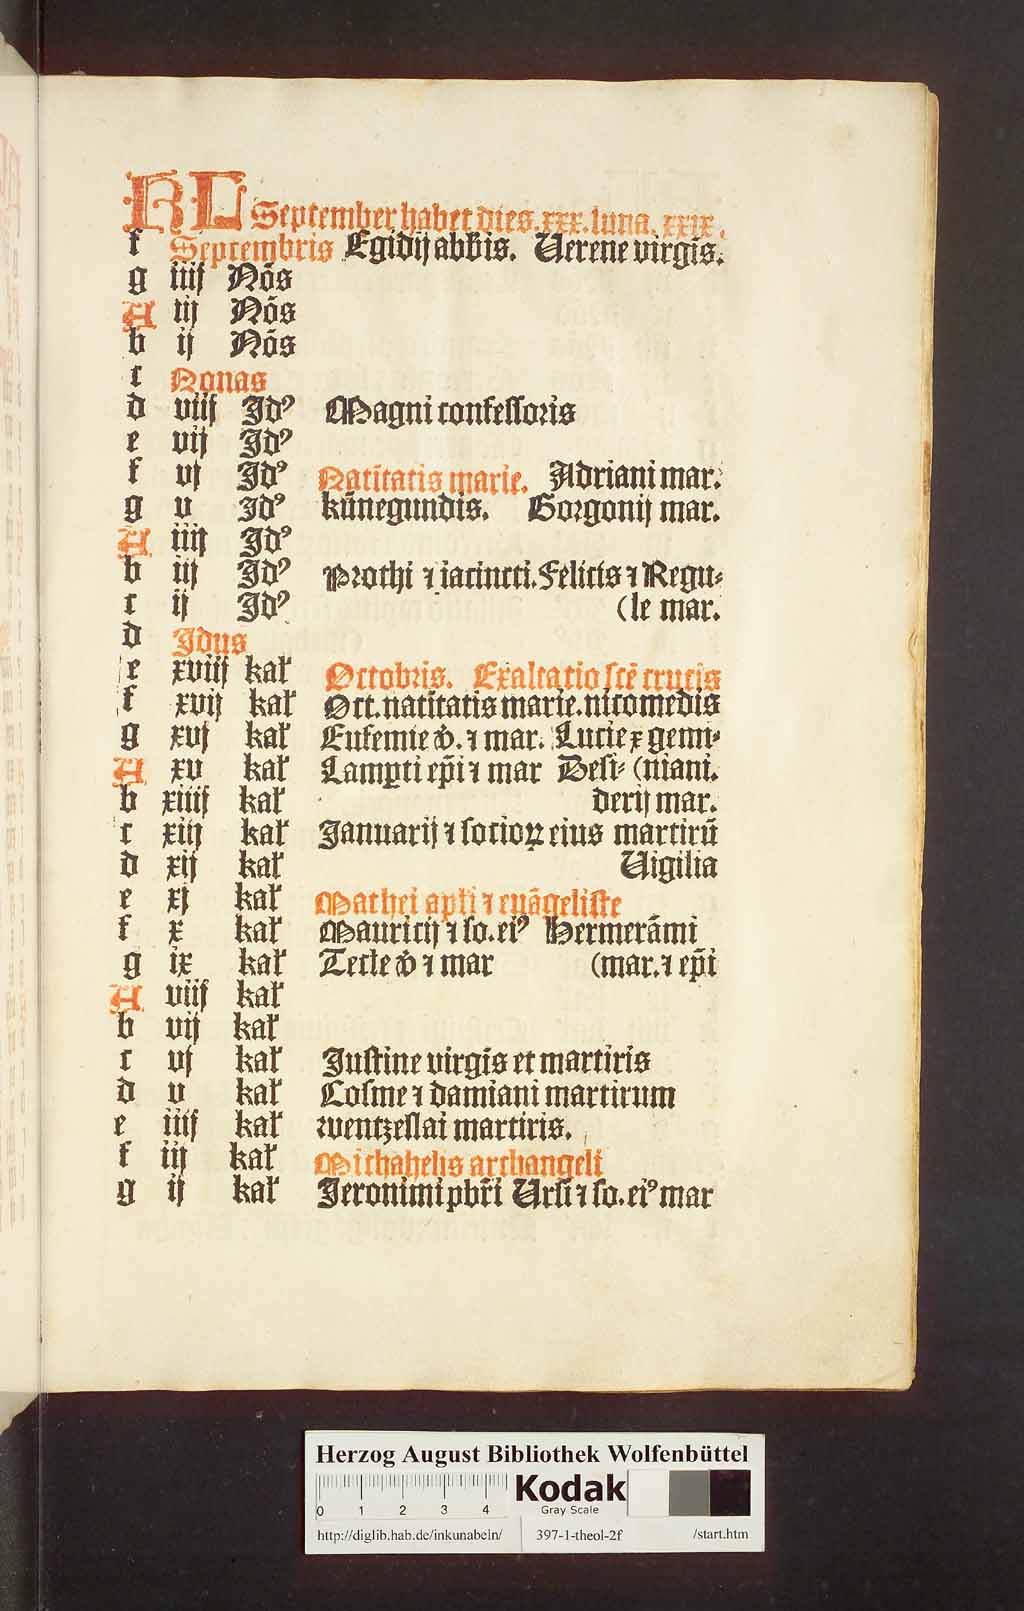 KL September habet dies.xxx.luna.xxix.
f Septembris Egidij abb̄is. Uerene virgis.
g iiij Nōs
A iij Nōs
b ij Nōs
c Nonas
d viij Idꝰ Magni confessoris
e vij Idꝰ
f vj Idꝰ Natītatis marie. Adriani mar.
g v Idꝰ kūnegundis. Gorgonij mar.
A iiij Idꝰ
b iij Idꝰ Prothi ⁊ iacincti. Felicis ⁊ Regu⸗
c ij Idꝰ (le mar.
d Idus
e xviij kal' Octobris. Exaltatio scē crucis
f xvij kal' Oct.natītatis marie.nicomedis
g xvj kal' Eufemie v̄. ⁊ mar. Lucie ⁊ gemi⸗
A xv kal' Lamꝑti ep̄i ⁊ mar Desi⸗ (niani.
b xiiij kal' derij mar.
c xiij kal' Januarij ⁊ socioꝝ eius martirū
d xij kal' Uigilia
e xj kal' Mathei apl'i ⁊ euāgeliste
f x kal' Mauricij ⁊ so.eiꝰ Hermerāmi
g ix kal' Tecle v̄ ⁊ mar (mar.⁊ ep̄i
A viij kal'
b vij kal'
c vj kal' Justine virgis et martiris
d v kal' Cosme ⁊ damiani martirum
e iiij kal' wentzeslai martiris.
f iij kal' Michahelis archangeli
g ij kal' Jeronimi pb̄ri Ursi ⁊ so.eiꝰ mar
Herzog August Bibliothek Wolfenbüttel
0 1 2 3 4 Kodak
Gray Scale
http://diglib.hab.de/inkunabeln/ 397-1-theol-2f /start.htm